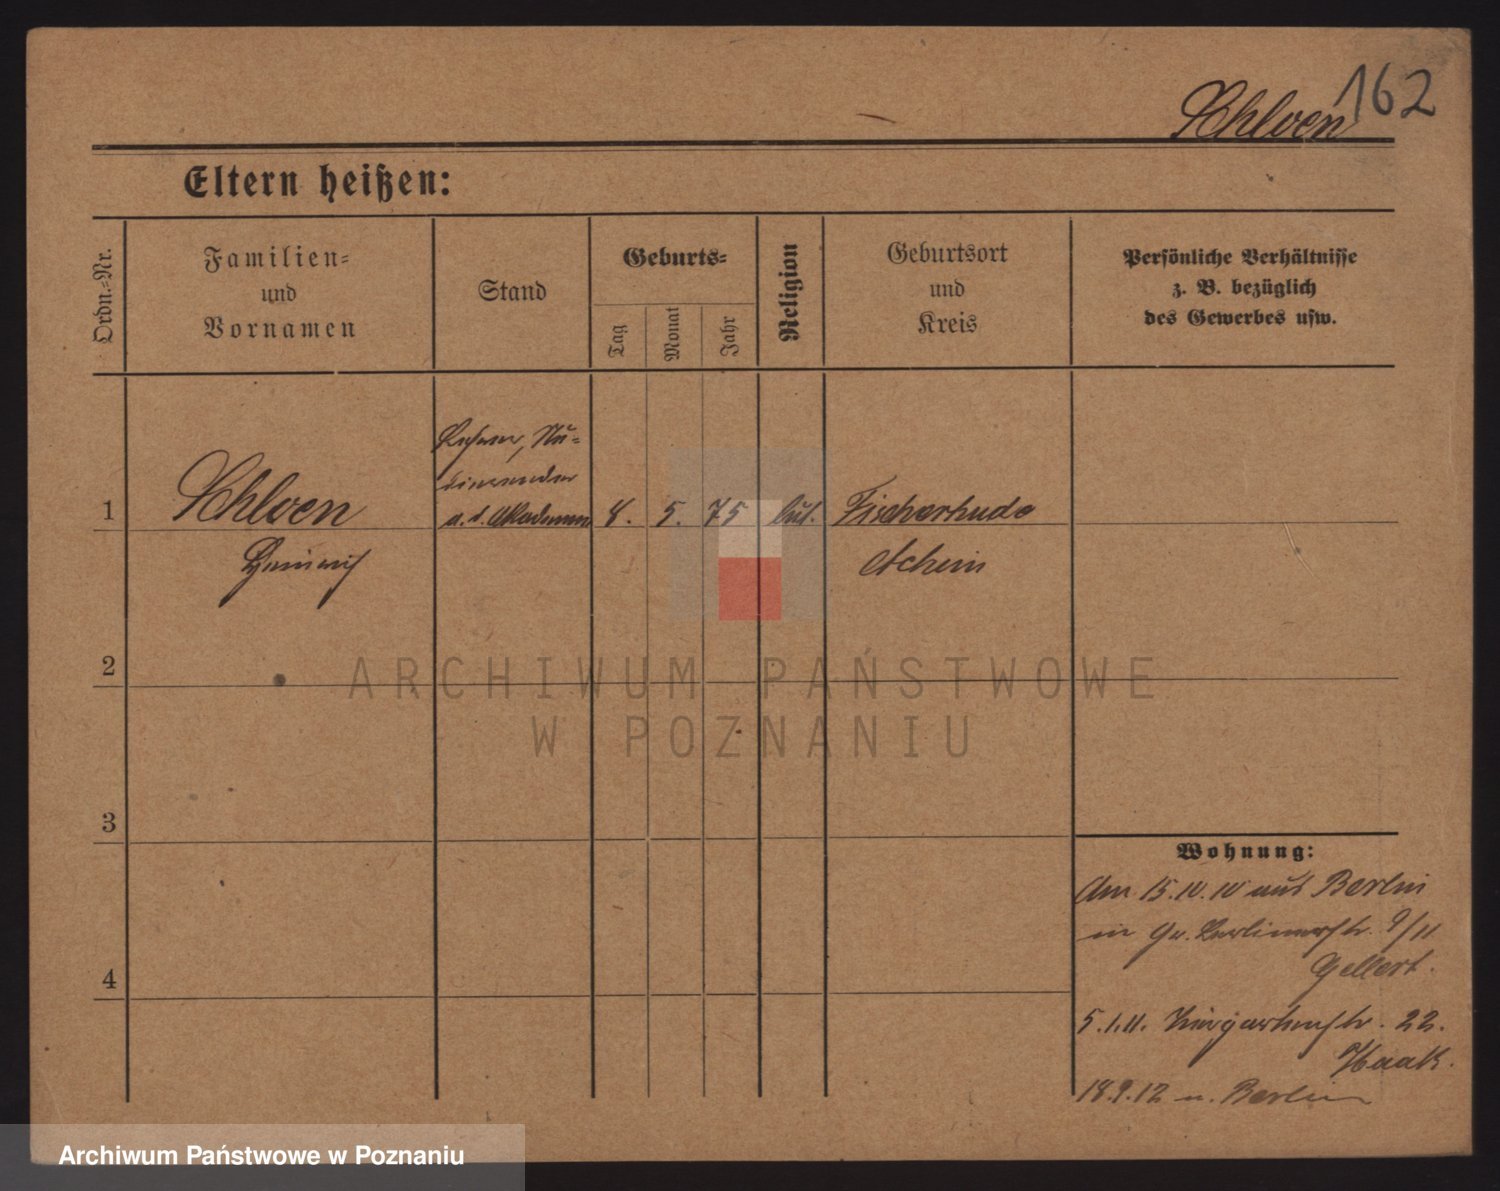 162
Schloen
Eltern heißen:
Ordn.-Nr.
Familien-
und
Vornamen
Stand
Geburts-
Tag
Monat
Jahr
Religion
Geburtsort
und
Kreis
Persönliche Verhältnisse
z. B. bezüglich
des Gewerbes usw.
Lehrer, Stu-
dierender
1 Schloen a. d. Akademie 8. 5. 75 luth. Fischerhude
Heinrich Achim
2
3
4
Wohnung:
Am 15.10.10 aus Berlin
in Gr. Berlinerstr. 9/11
Gellert.
5.1.11. 22.
Haak.
18.9.12 n. Berlin
ARCHIWUM PAŃSTWOWE
W POZNANIU
Archiwum Państwowe w Poznaniu